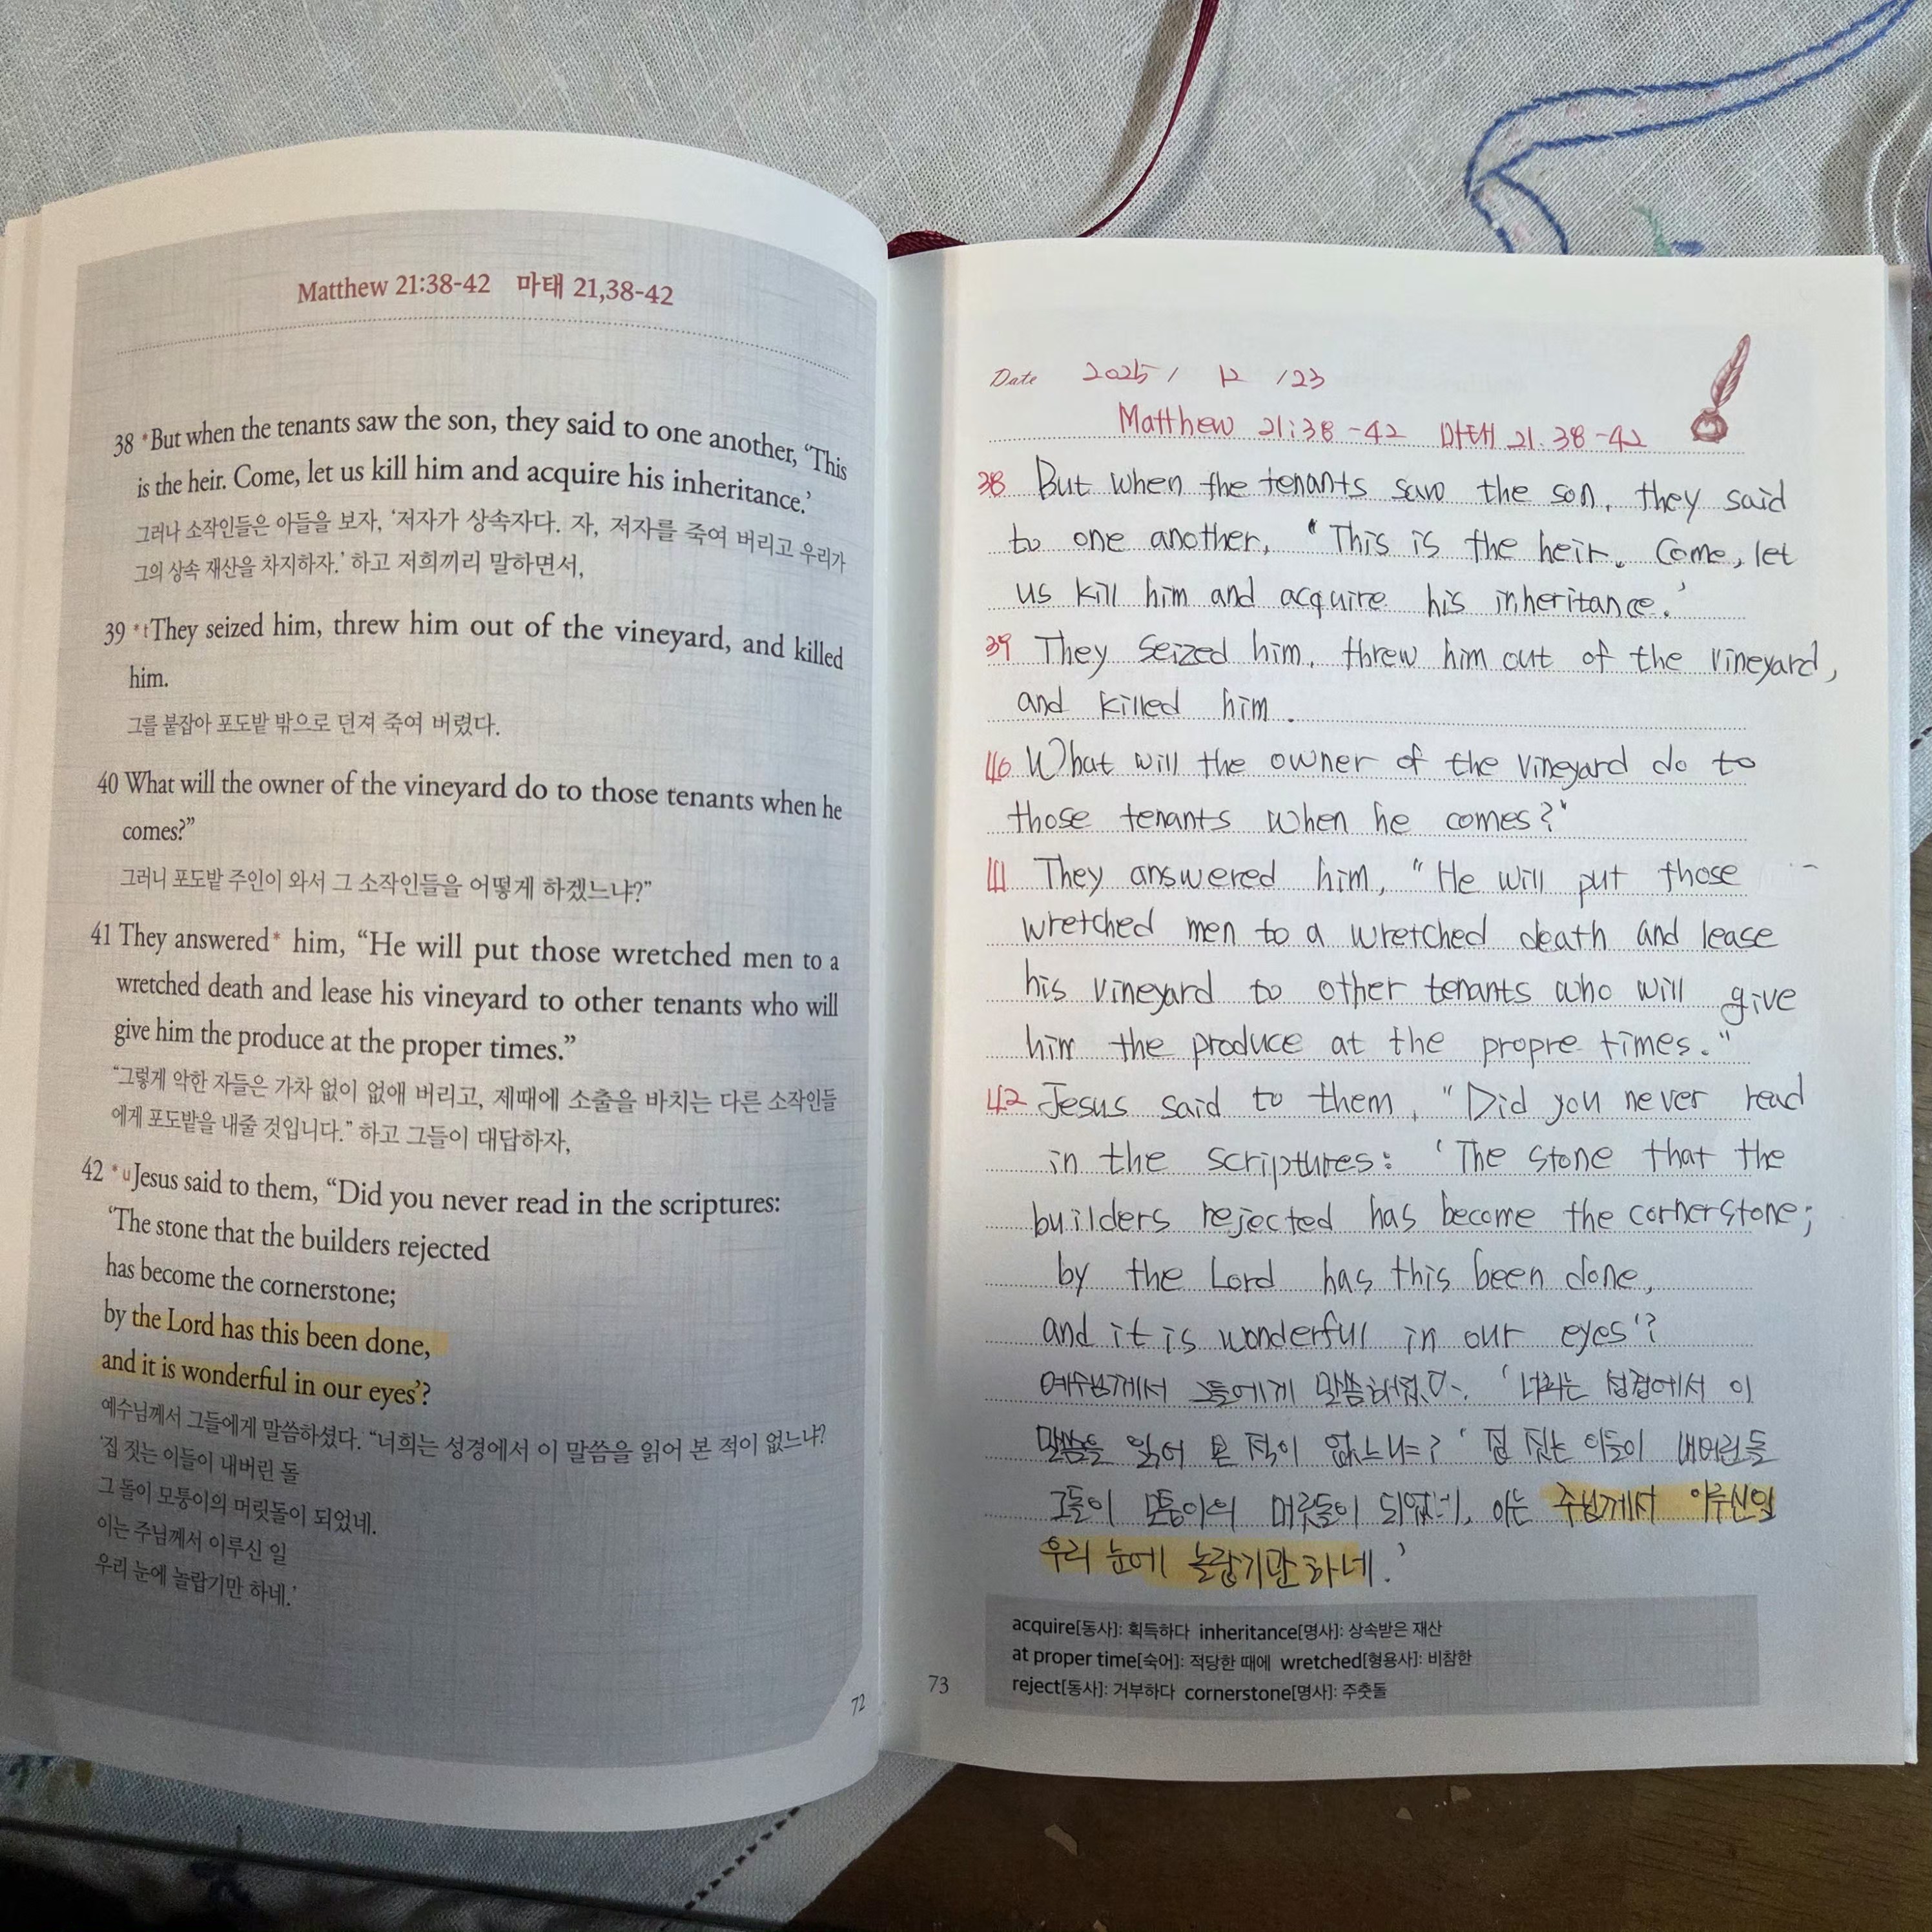 Matthew 21:38-42 마태 21,38-42
38 *But when the tenants saw the son, they said to one another, ‘This
is the heir. Come, let us kill him and acquire his inheritance.’
그러나 소작인들은 아들을 보자, ‘저자가 상속자다. 자, 저자를 죽여 버리고 우리가
그의 상속 재산을 차지하자.’ 하고 저희끼리 말하면서,
39 *tThey seized him, threw him out of the vineyard, and killed
him.
그를 붙잡아 포도밭 밖으로 던져 죽여 버렸다.
40 What will the owner of the vineyard do to those tenants when he
comes?”
그러니 포도밭 주인이 와서 그 소작인들을 어떻게 하겠느냐?”
41 They answered* him, “He will put those wretched men to a
wretched death and lease his vineyard to other tenants who will
give him the produce at the proper times.”
“그렇게 악한 자들은 가차 없이 없애 버리고, 제때에 소출을 바치는 다른 소작인들
에게 포도밭을 내줄 것입니다.” 하고 그들이 대답하자,
42 *uJesus said to them, “Did you never read in the scriptures:
‘The stone that the builders rejected
has become the cornerstone;
by the Lord has this been done,
and it is wonderful in our eyes’?
예수님께서 그들에게 말씀하셨다. “너희는 성경에서 이 말씀을 읽어 본 적이 없느냐?
‘집 짓는 이들이 내버린 돌
그 돌이 모퉁이의 머릿돌이 되었네.
이는 주님께서 이루신 일
우리 눈에 놀랍기만 하네.’
72
Date 2025 / 12 / 23
Matthew 21:38-42 마태 21. 38-42
38 But when the tenants saw the son, they said
to one another, “This is the heir. Come, let
us kill him and acquire his inheritance.’
39 They seized him, threw him out of the vineyard,
and killed him.
40 What will the owner of the vineyard do to
those tenants when he comes?”
41 They answered him, “He will put those
wretched men to a wretched death and lease
his vineyard to other tenants who will give
him the produce at the propre times.”
42 Jesus said to them, “Did you never read
in the scriptures: ‘The stone that the
builders rejected has become the cornerstone;
by the Lord has this been done,
and it is wonderful in our eyes’?
예수님께서 그들에게 말씀하셨다. ‘너희는 성경에서 이
말씀을 읽어 본 적이 없느냐? ‘집 짓는 이들이 내버린 돌
그돌이 모퉁이의 머릿돌이 되었네. 이는 주님께서 이루신일
우리 눈에 놀랍기만 하네.’
acquire[동사]: 획득하다 inheritance[명사]: 상속받은 재산
at proper time[숙어]: 적당한 때에 wretched[형용사]: 비참한
reject[동사]: 거부하다 cornerstone[명사]: 주춧돌
73